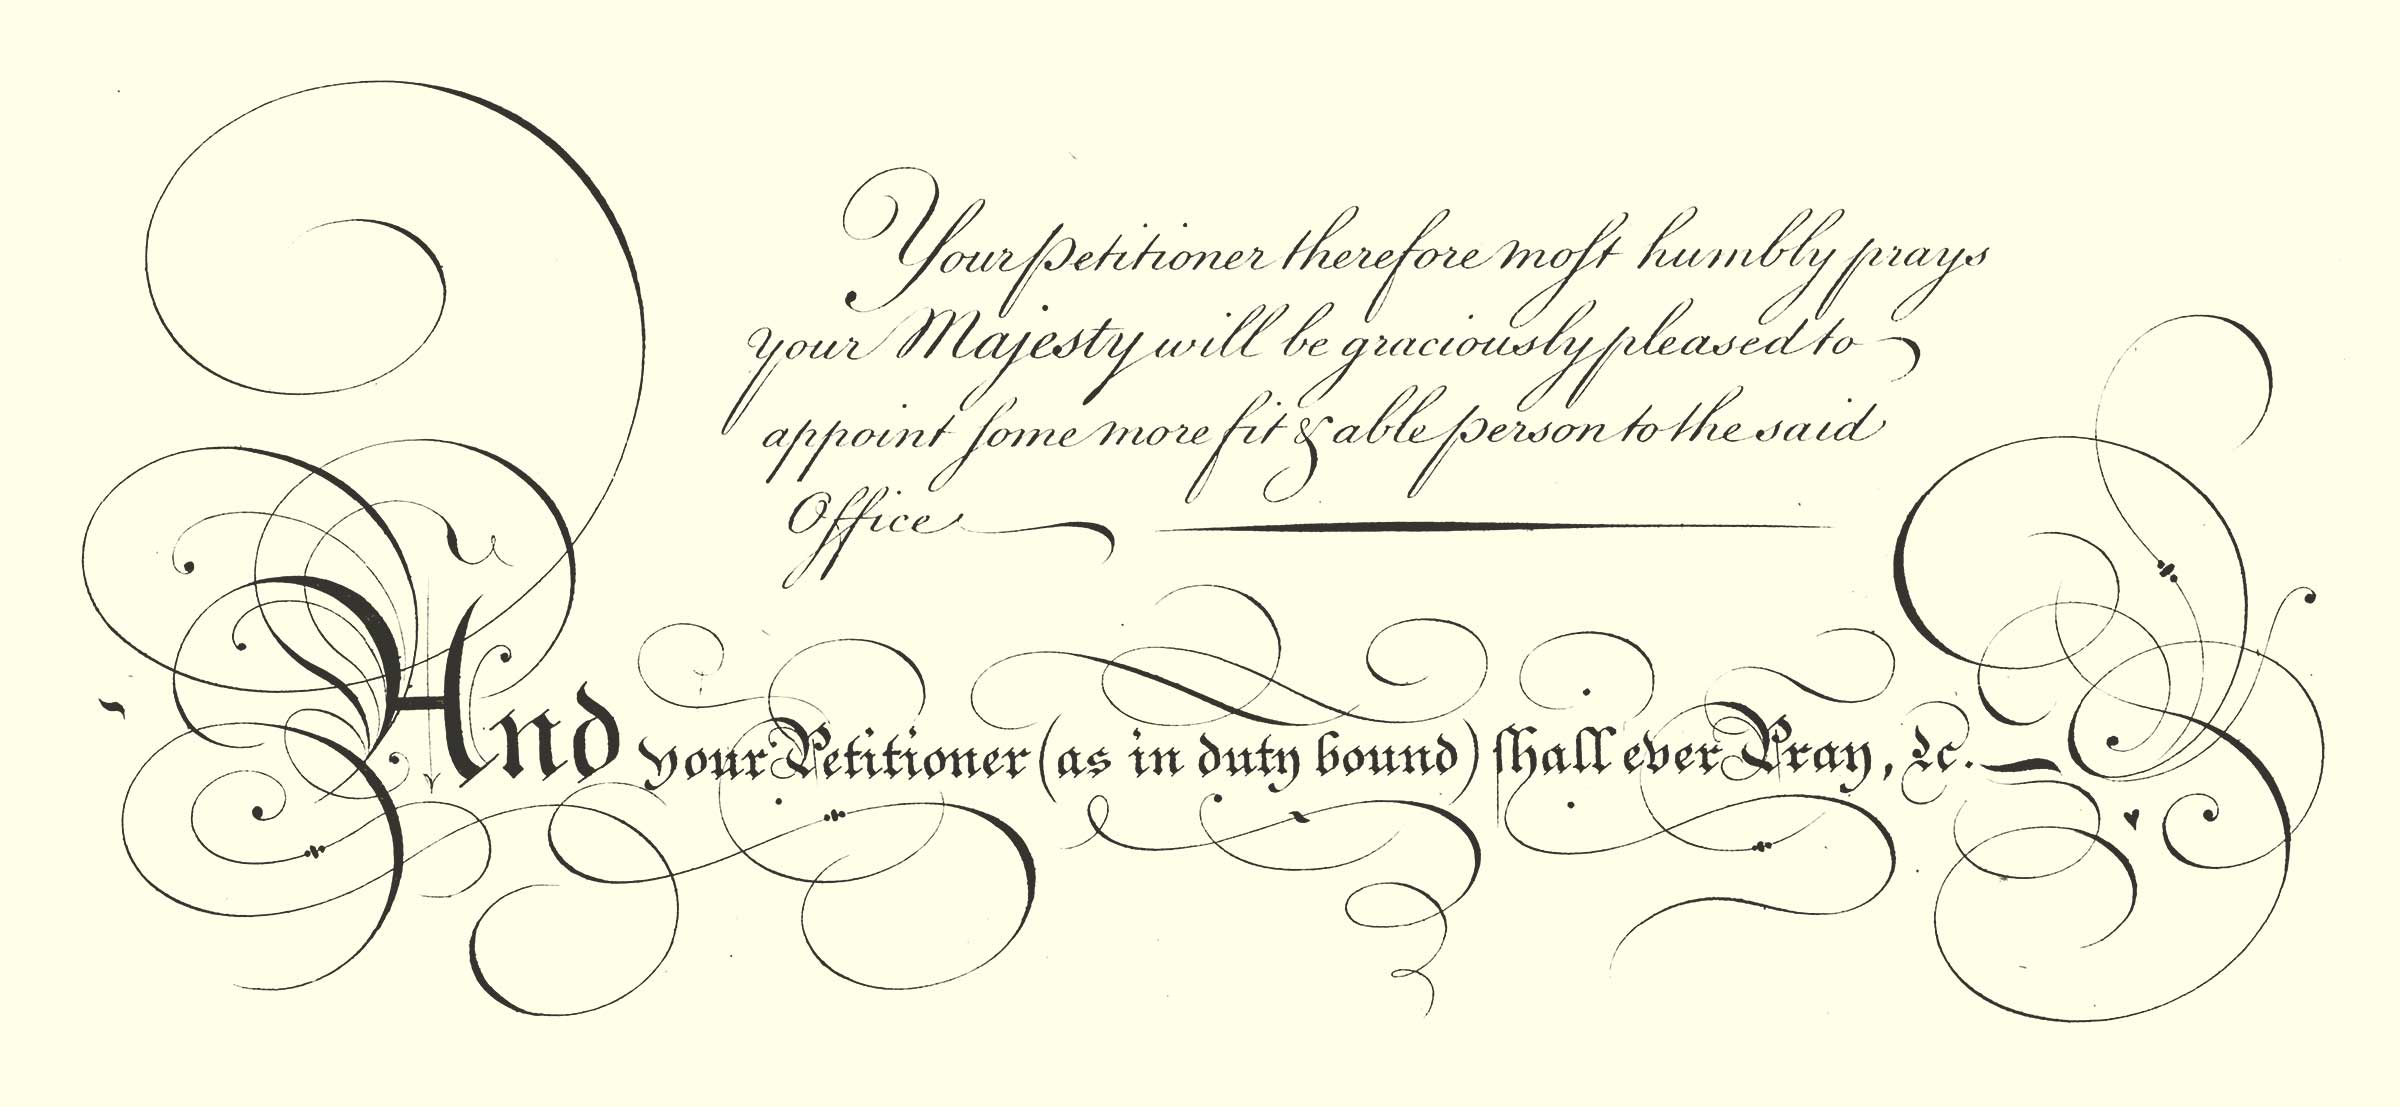 Your petitioner therefore moſt humbly prays
your Majesty will be graciously pleased to
appoint ſome more fit & able person to the said
Office
And your Petitioner (as in duty bound) ſhall ever Pray, &c.